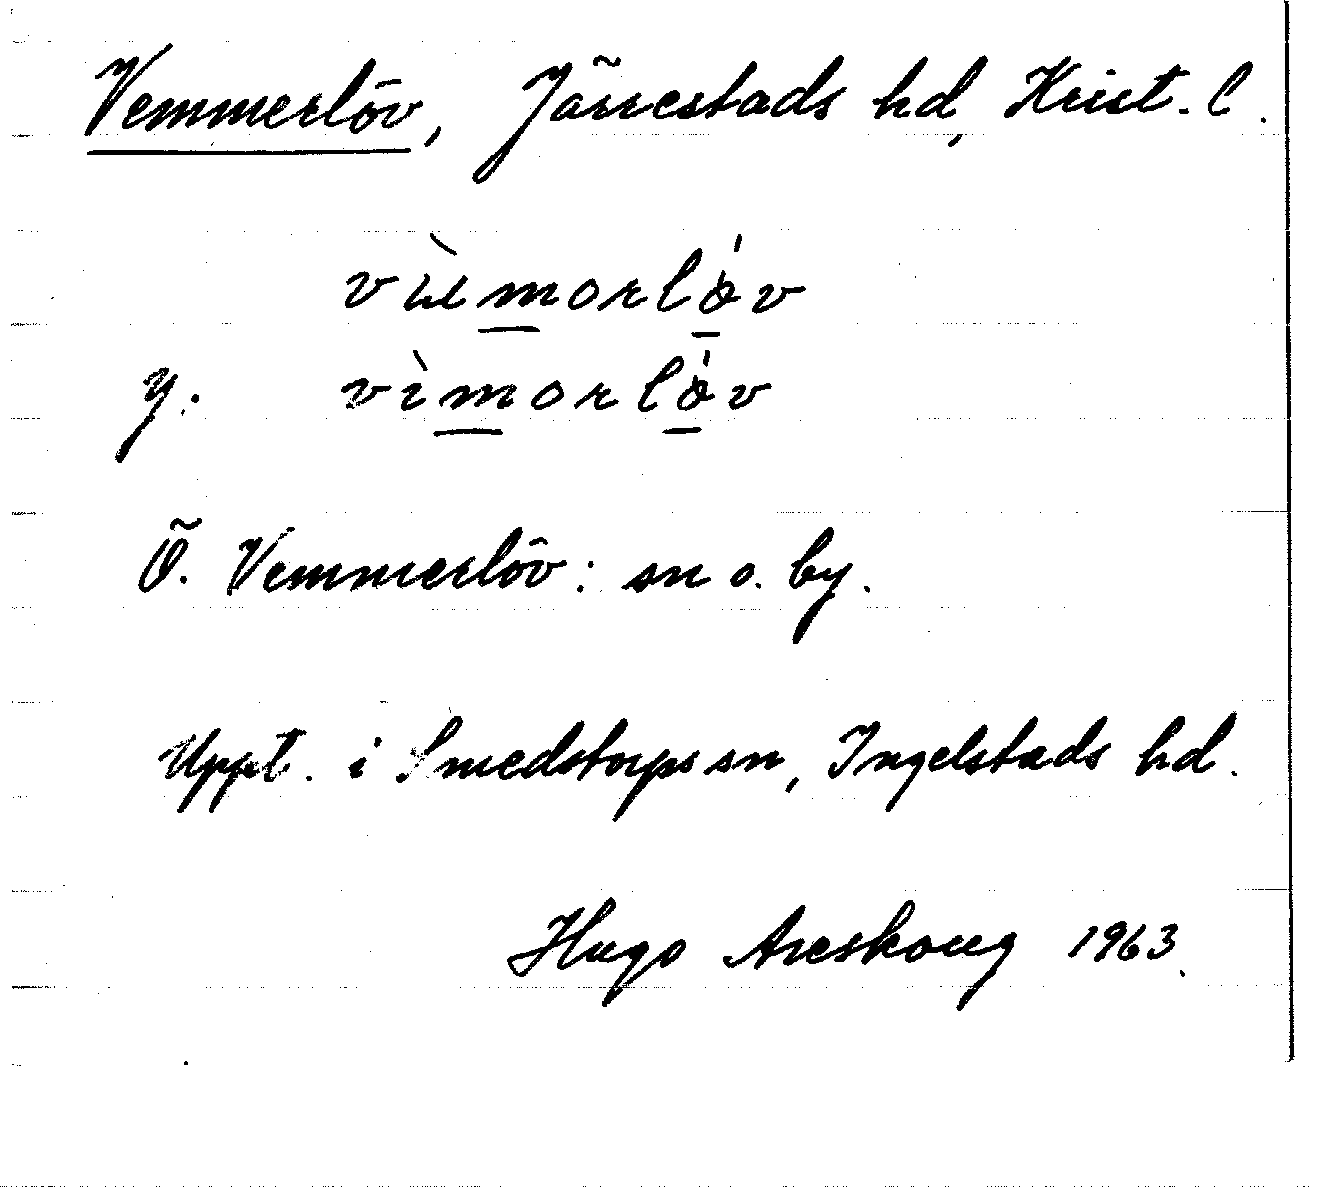 Vemmerlöv, Järrestads hd, Krist. l.
y.
Ö. Vemmerlöv: sn o. by.
Uppt. i Smedstorps sn, Ingelstads hd.
Hugo Areskoug 1963.